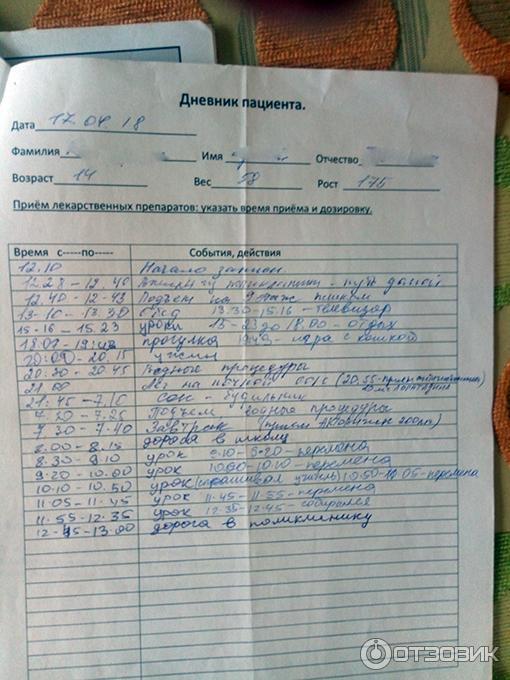 Дневник пациента.
Дата 17.04.18
Фамилия Имя Отчество
Возраст 14 Вес 58 Рост 175
Приём лекарственных препаратов: указать время приёма и дозировку.
Время с-----по----- События, действия
12.10 Начало записи
12.28 - 12.40 поликлиники - путь домой
12.40 - 12.43 Подъем на этаж пешком
13-10 - 13.30 Обед 13.30-15.16 - телевизор
15-16 - 15.23 уроки 15-23 18.00 - отдых
прогулка игра с кошкой
20.00 - 20.15 ужин
20:30 - 20.45 Водные процедуры
21.00 Лег на ночной (20.55-
21.45 - 7.10 Сон - будильник
Подъем, водные процедуры
7 30 - 7.40 Завтрак (прием
8.00 - 8.15 дорога в школу
8.30 - 9.10 урок 9-10 - 9-20 - перемена
9.20 - 10.00 урок 10.00 - 10.10 - перемена
10.10 - 10.50 урок (спрашивал учитель) 10.50 - 05 - перемена
11.05 - 11.45 урок 11.45 - 11.55 - перемена
11.55 - 12.35 урок 12.35 - 12.45 - собирался
12-45 - 13.00 дорога в поликлинику
ОТЗОВИК